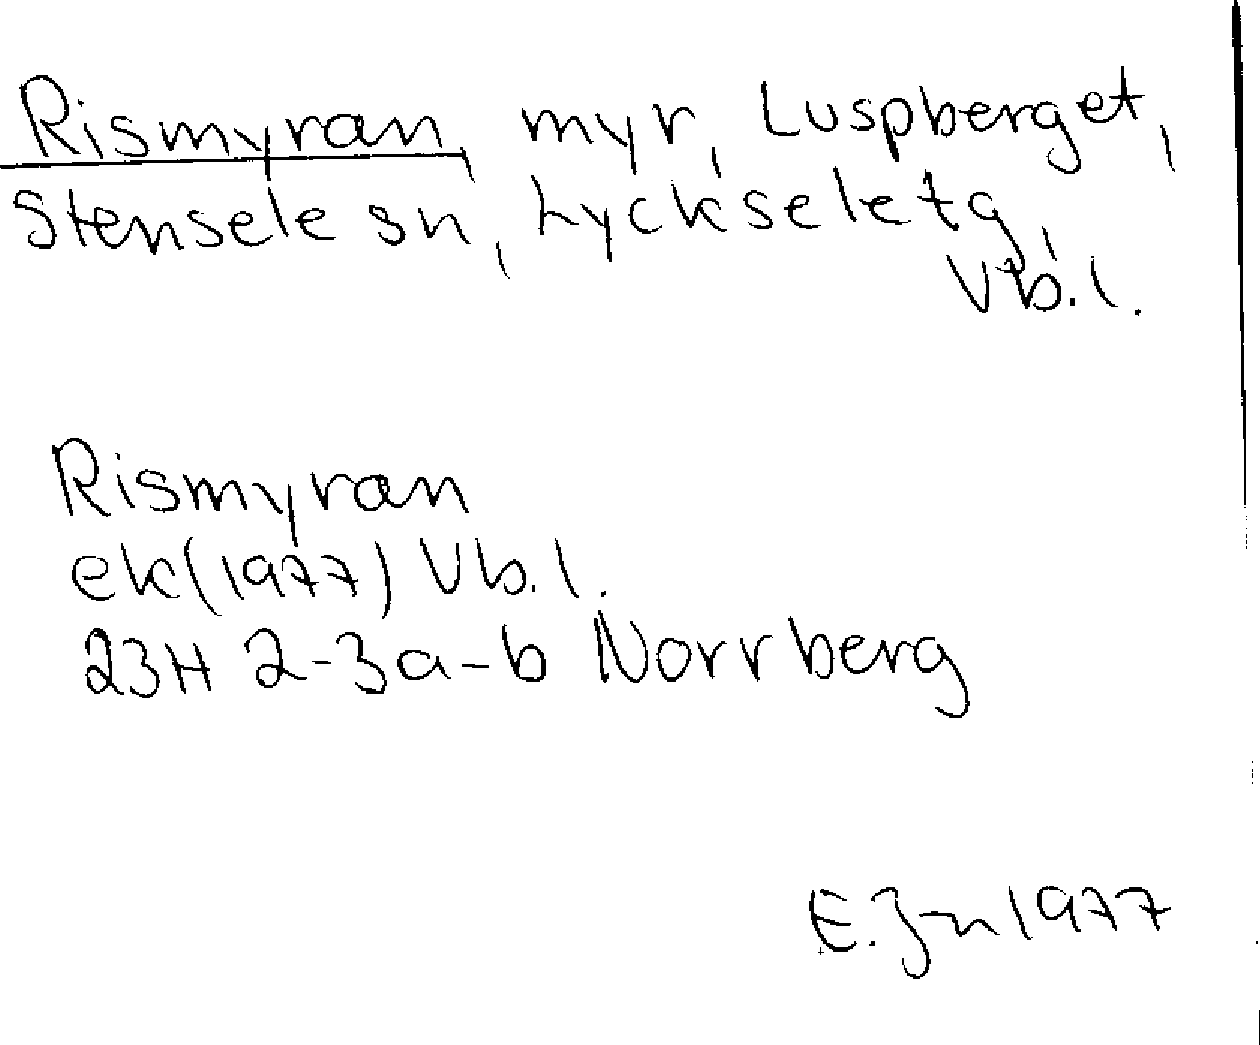 Rismyran, myr, Luspberget,
Stensele sn, Lyckseletg,
Vb.l.
Rismyran
ek(1977) Vb.l.
23H 2-3a-b Norrberg
E. J-n 1977